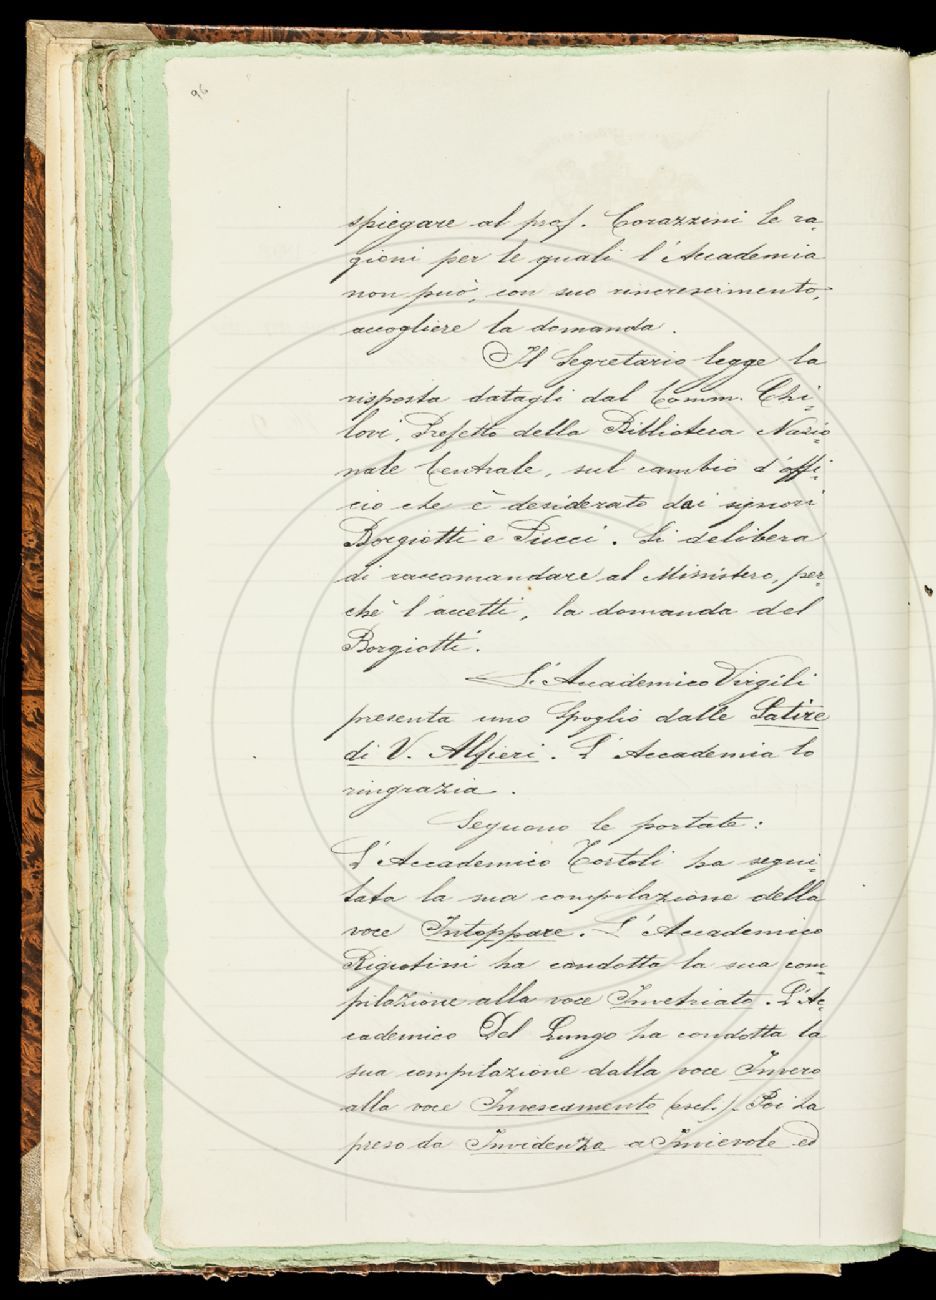 96
spiegare al prof. Corazzini le ra-
gioni per le quali l'Accademia
non può, con suo rincrescimento,
accogliere la domanda.
Il Segretario legge la
risposta datagli dal Comm. Chi-
lovi, Prefetto della Biblioteca Nazio-
nale Centrale, sul cambio d'offi-
cio che è desiderato dai signori
Borgiotti e Pucci. Si delibera
di raccomandare al Ministero, per-
chè l'accetti, la domanda del
Borgiotti.
L'Accademico Virgili
presenta uno Spoglio dalle Satire
di V. Alfieri. L'Accademia lo
ringrazia.
Seguono le portate:
L'Accademico Tortoli ha segui-
tata la sua compilazione della
voce Intoppare. L'Accademico
Rigutini ha condotta la sua com-
pilazione alla voce Invetriato. L'Ac-
cademico Del Lungo ha condotta la
sua compilazione dalla voce Invero
alla voce Invescamento (escl.). Poi ha
preso da Invidenza a Invievole ed